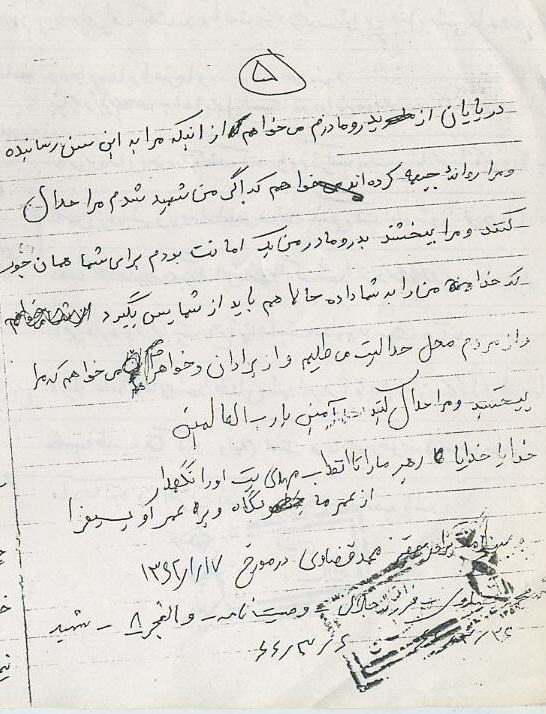 ۵
در پایان از پدر و مادرم می خواهم از اینکه مرا به این سن رسانیده
و مرا روانهٔ جبهه کرده اند می خواهم که اگر من شهید شدم مرا حلال
کنند و مرا ببخشند پدر و مادر من یک امانت بودم برای شما همان جور
که خدا من را به شما داده حالا هم باید از شما پس بگیرد
و از مردم محل حلالیت می طلبم و از برادران و خواهرم می خواهم که مرا
ببخشند و مرا حلال کنند آمین یا رب العالمین
خدایا خدایا رهبر ما را تا انقلاب مهدیت او را نگهدار
از عمر ما بکاه و بر عمر او بیفزا
وصیت نامه برادر محمد قضاوی در مورخ ۱۳۶۲/۱/۱۷
فرزند جلال - وصیت نامه - والفجر ۸ - شهید